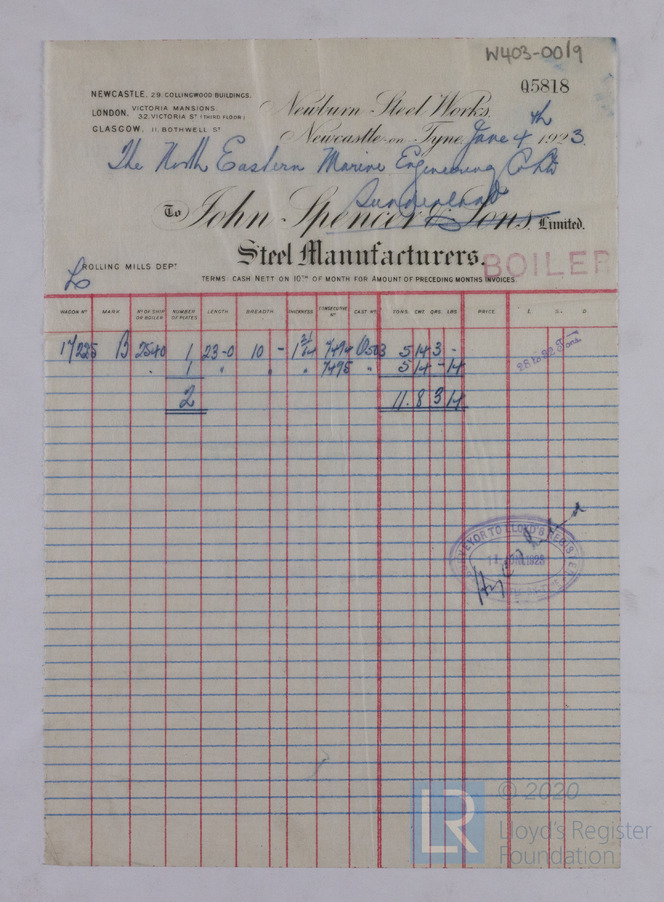 W403-0019
Q5818
NEWCASTLE. 29, COLLINGWOOD BUILDINGS.
LONDON. VICTORIA MANSIONS.
32, VICTORIA ST (THIRD FLOOR)
GLASGOW. 11, BOTHWELL ST
Newburn Steel Works,
Newcastle-on-Tyne, June 4th 1923.
The North Eastern Marine Engineering Co Ltd
Sunderland
To John Spencer & Sons, Limited.
Steel Manufacturers.
ROLLING MILLS DEPT
BOILER
TERMS: CASH NETT ON 10TH OF MONTH FOR AMOUNT OF PRECEDING MONTHS INVOICES.
WAGON No MARK No OF SHIP OR BOILER NUMBER OF PLATES LENGTH BREADTH THICKNESS CONSECUTIVE No CAST No TONS. CWT QRS LBS PRICE £ S D
17225 B 2540 1 23-0 10 - 7494 5 14 3 -
1 " " " 7495 5 14 - 14
2 11. 8 3 14
SURVEYOR TO LLOYD'S REGISTER
1923
LR
© 2020
Lloyd's Register
Foundation